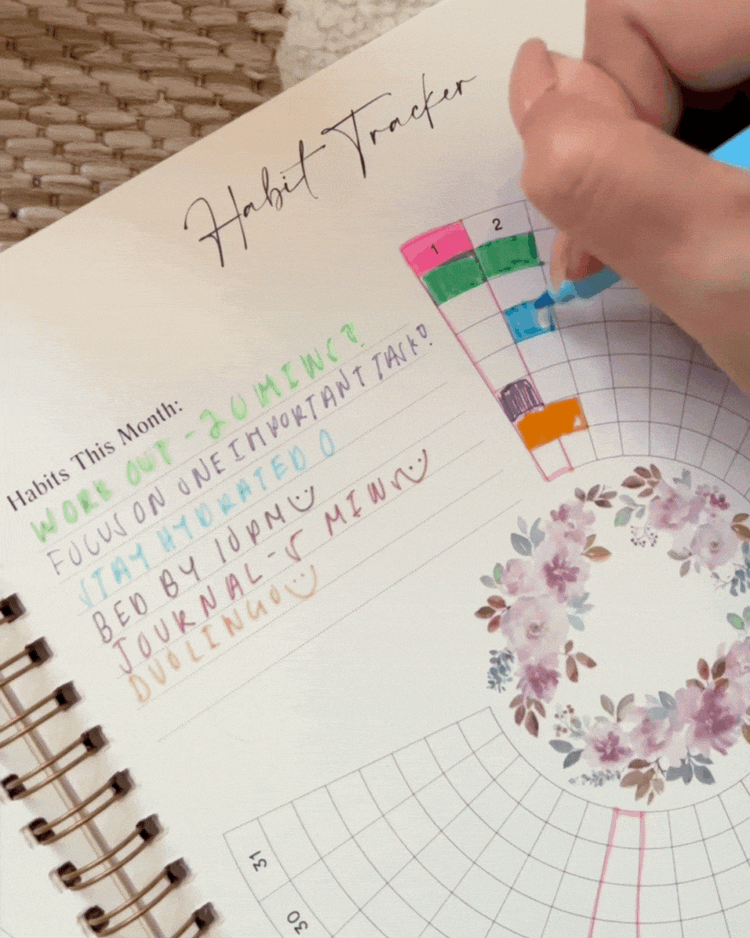 Habit Tracker
1
2
Habits This Month:
WORK OUT - 20 MINS?
FOCUS ON ONE IMPORTANT TASK?
STAY HYDRATED
BED BY 10PM
JOURNAL - 5 MINS
DUOLINGO
31
30